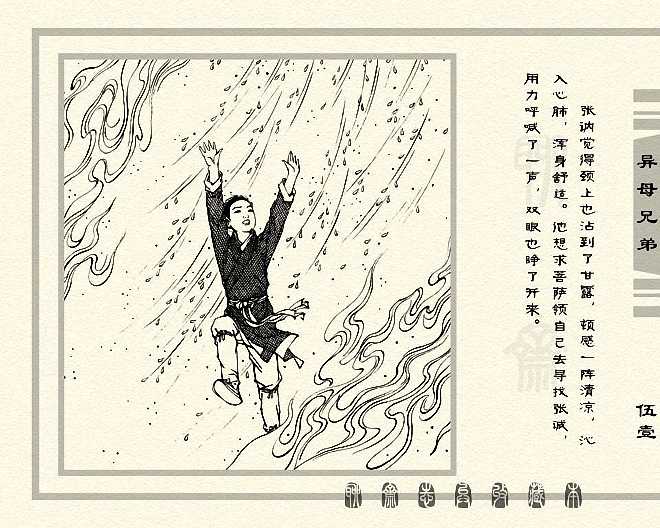 异母兄弟
伍壹
张讷觉得颈上也沾到了甘露，顿感一阵清凉，沁
入心肺，浑身舒适。他想求菩萨领自己去寻找张诚，
用力呼喊了一声，双眼也睁了开来。